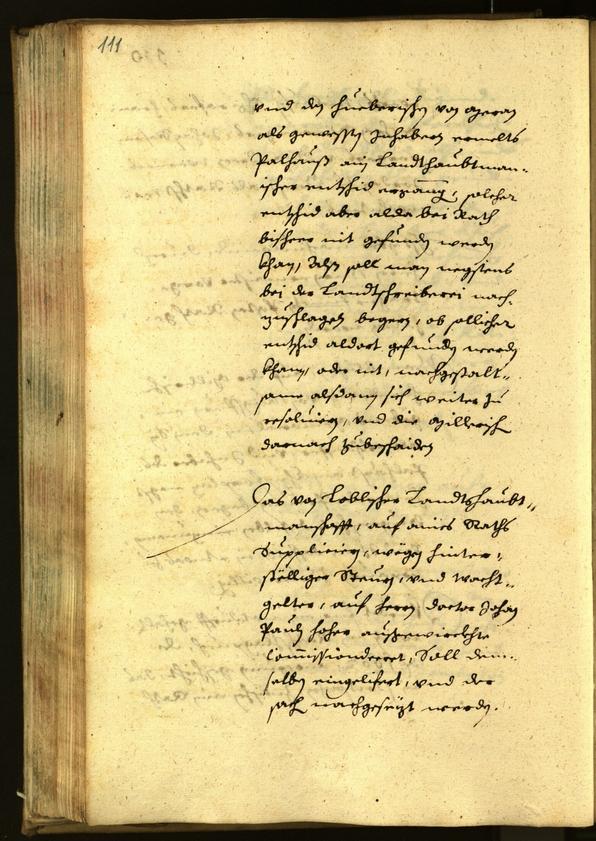 111
vnd den Hueberischen von Meran
als gewessten Inhabern ermelts
Palhauß ain Landthaubtman-
ischer entschid ergangen, solcher
entschid aber alda bei Rath
bisheer nit gefunden werden
khan, Alß soll man negstens
bei der Landtschreiberei nach-
zuschlagen begern, ob sollicher
entschid aldort gefunden werden
khan, oder nit, nachgestalt-
same alsdann sich weiter zu
resoluiern, vnd die Millerisch
darnach zubeschaiden
Das von Loblicher Landtshaubt-
manschafft, auf aines Raths
Supplicieren, wegen hinter-
stelliger Steurn, vnd wacht-
gelter, auf herrn doctor Johan
Pauln hoher außgewirckhte
Commissiondecret, Soll dem-
selben eingelifert, vnd der
sach nachgesezt werden.